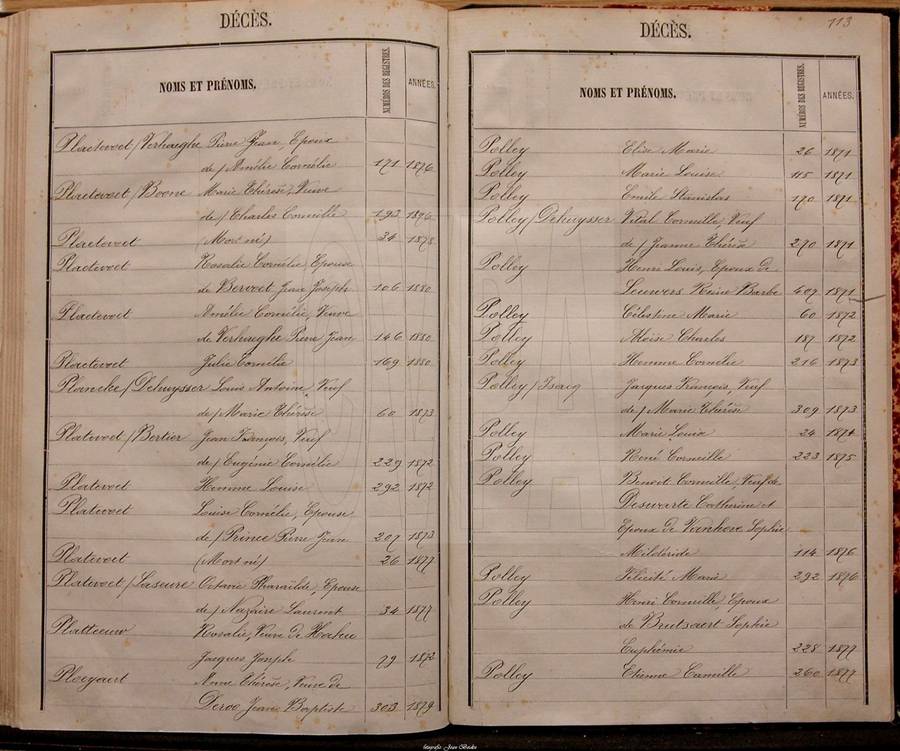 DÉCÈS.
NOMS ET PRÉNOMS. NUMÉROS DES REGISTRES. ANNÉES.
Plaetevoet / Verhaeghe Pierre Jean, Epoux
de / Amélie Cornélie 171 1876
Plaetevoet / Boone Marie Thérèse, Veuve
de / Charles Corneille 193 1876
Plaetevoet (Mort né) 34 1878
Plaetevoet Rosalie Cornélie, Epouse
de Bervoet Jean Joseph 106 1880
Plaetevoet Amélie Cornélie, Veuve
de Verhaeghe Pierre Jean 146 1880
Plaetevoet Julie Cornélie 169 1880
Plancke / Dehuysser Louis Antoine, Veuf
de / Marie Thérèse 60 1873
Platevoet / Bertier Jean François, Veuf
de / Eugénie Cornélie 229 1872
Platevoet Hemme Louise 292 1872
Platevoet Louise Cornélie, Epouse
de / Prince Pierre Jean 207 1873
Platevoet (Mort né) 26 1877
Platevoet / Laseure Octavie Pharaïlde, Epouse
de / Nazaire Laurent 34 1877
Platteeuw Rosalie, Veuve de
Jacques Joseph 79 1872
Ploeyaert Anne Thérèse, Veuve de
Deroo Jean Baptiste 303 1879
113
DÉCÈS.
NOMS ET PRÉNOMS. NUMÉROS DES REGISTRES. ANNÉES.
Polley Elise Marie 26 1871
Polley Marie Louise 115 1871
Polley Emile Stanislas 170 1871
Polley / Dehuysser Vital Corneille, Veuf
de / Jeanne Thérèse 270 1871
Polley Henri Louis, Epoux de
Leuwers Reine Barbe 407 1871
Polley Célestine Marie 60 1872
Polley Aloïse Charles 187 1872
Polley Hemme Cornélie 216 1873
Polley / Isacq Jacques François, Veuf
de / Marie Thérèse 309 1873
Polley Marie Louise 24 1874
Polley René Corneille 223 1875
Polley Benoît Corneille, Veuf de
Deswarte Catherine et
Epoux de Vanhove Sophie
Mildéride 114 1876
Polley Félicité Marie 292 1876
Polley Henri Corneille, Epoux
de Brutsaert Sophie
Euphémie 228 1877
Polley Etienne Camille 260 1877
fotografie Jean Boeckx